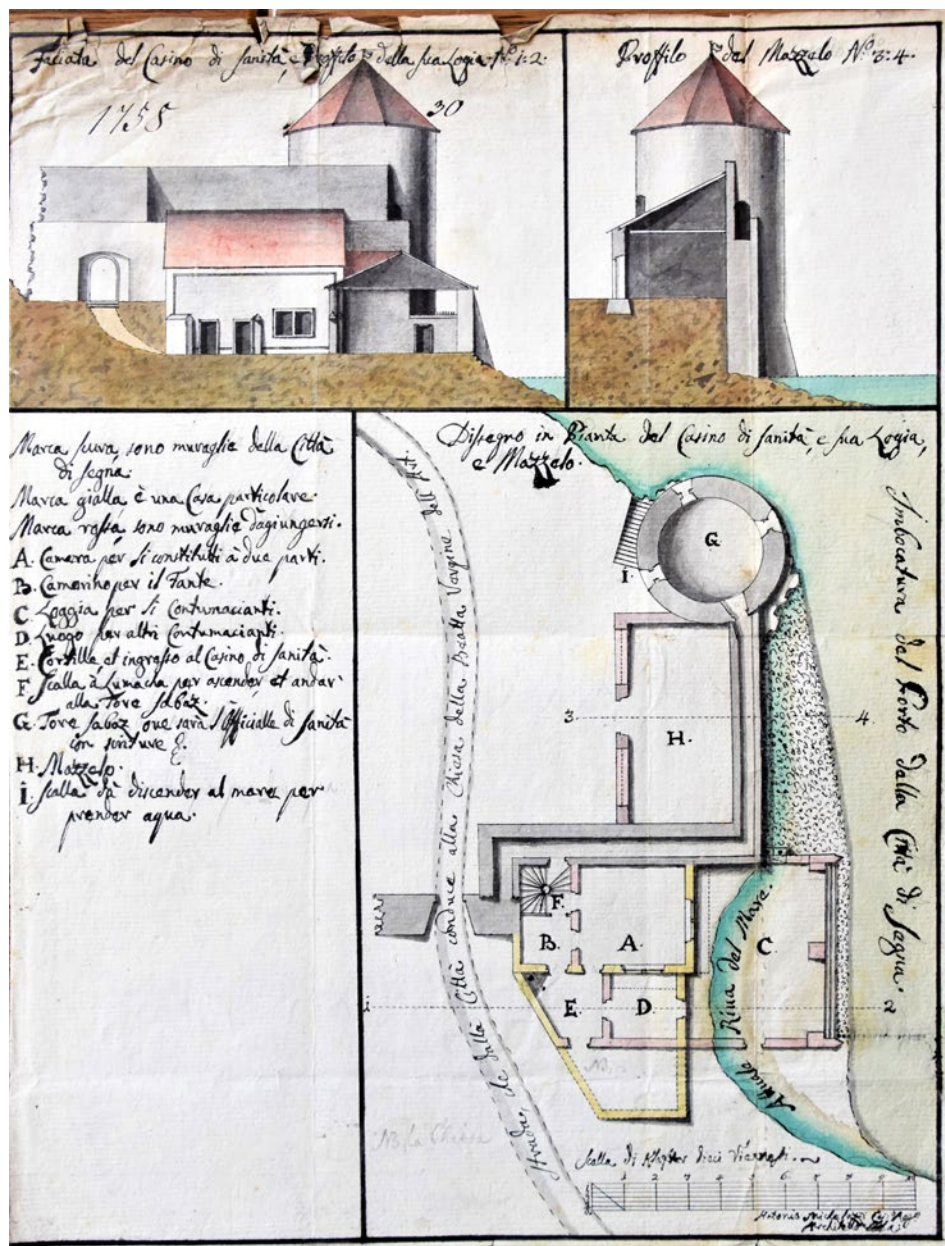 Faciata del Casino di sanità, e Proffilo della sua Logia Nº. 1:2:
1758
30
Proffilo del Mazzelo Nº. 3:4.
Marca scura, sono muraglie della Città
di Segna.
Marca gialla è una Casa particolare.
Marca rossa sono muraglie d'agiungersi.
A. Camera per li constituti à due parti.
B. Camerino per il Fante.
C Loggia per li Contumacianti.
D Luogo per altri Contumacianti.
E. Cortille et ingresso al Casino di Sanità.
F Scalla à Lumacha per ascender et andar
alla Tore Sabaz.
G. Tore Sabaz, oue sarà l'Officialle di Sanità
con scriture &.
H. Mazzelo.
I. Scalla da discender al mare per
prender aqua.
Disegno in Pianta del Casino di Sanità, e sua Logia,
e Mazzelo.
Strada, che dalla Città conduce alla Chiesa della Beatta Vergine dell'
Imbocatura del Porto dalla Città di Segna.
G.
I.
3
H.
4.
F.
B.
A.
C
Riua del Mare.
1
E
D
2
NB.
NB. la Chiesa
Scalla di Klafter dieci Viennesi.
1 2 3 4 5 6 7 8 9
Antonio
Architetto